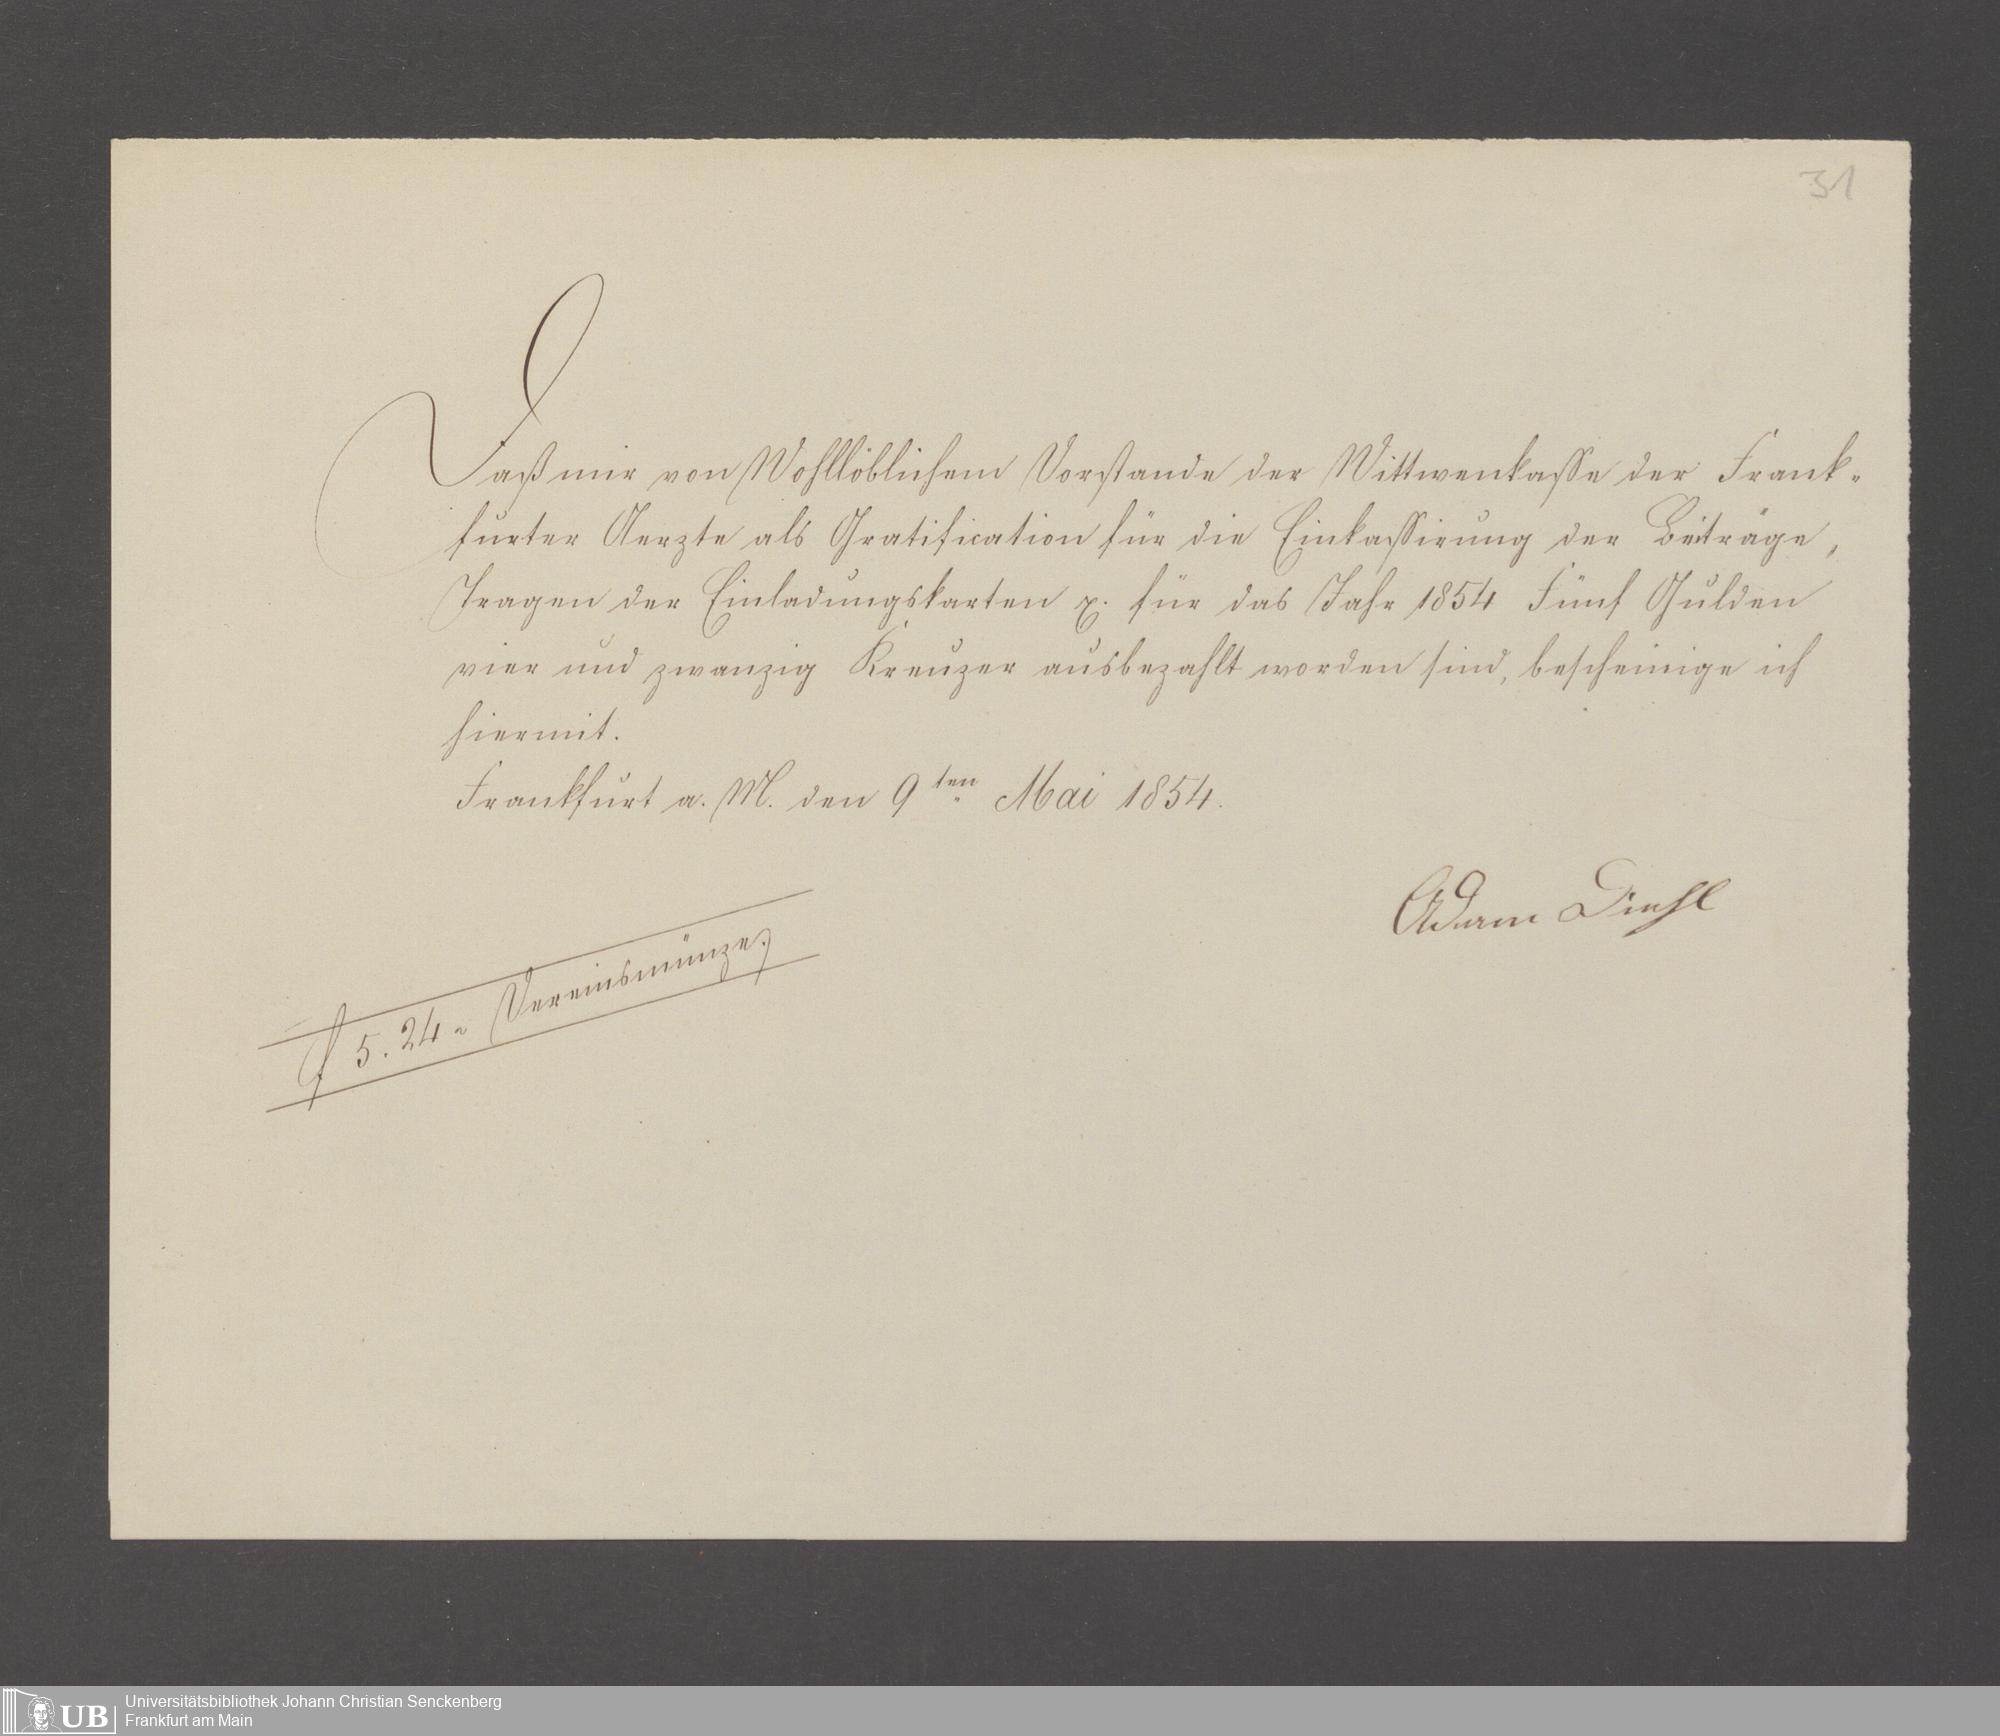 31
Daß mir von Wohllöblichem Vorstande der Wittwenkasse der Frank-
furter Aerzte als Gratification für die Einkassirung der Beiträge,
Tragen der Einladungskarten x. für das Jahr 1854 Fünf Gulden
vier und zwanzig Kreuzer ausbezahlt worden sind, bescheinige ich
hiermit.
Frankfurt a. M. den 9ten Mai 1854.
Adam Diehl
f 5. 24 Vereinsmünze.
UB
Universitätsbibliothek Johann Christian Senckenberg
Frankfurt am Main